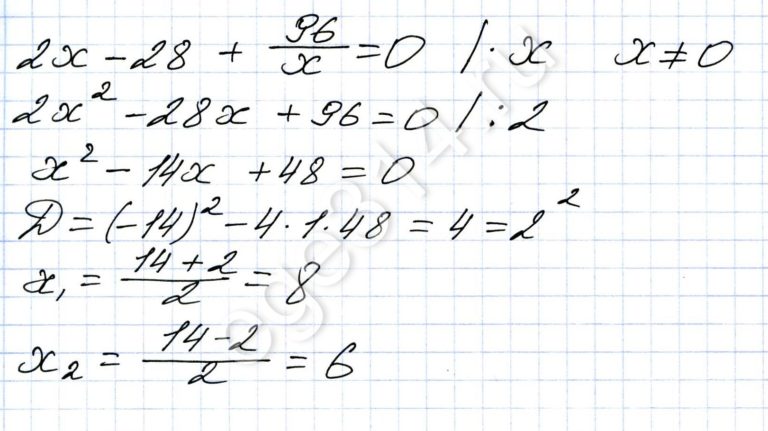 2x - 28 + 96/x = 0 /: x x ≠ 0
2x² - 28x + 96 = 0 /: 2
x² - 14x + 48 = 0
D = (-14)² - 4 · 1 · 48 = 4 = 2²
x₁ = (14 + 2)/2 = 8
x₂ = (14 - 2)/2 = 6
ege314.ru